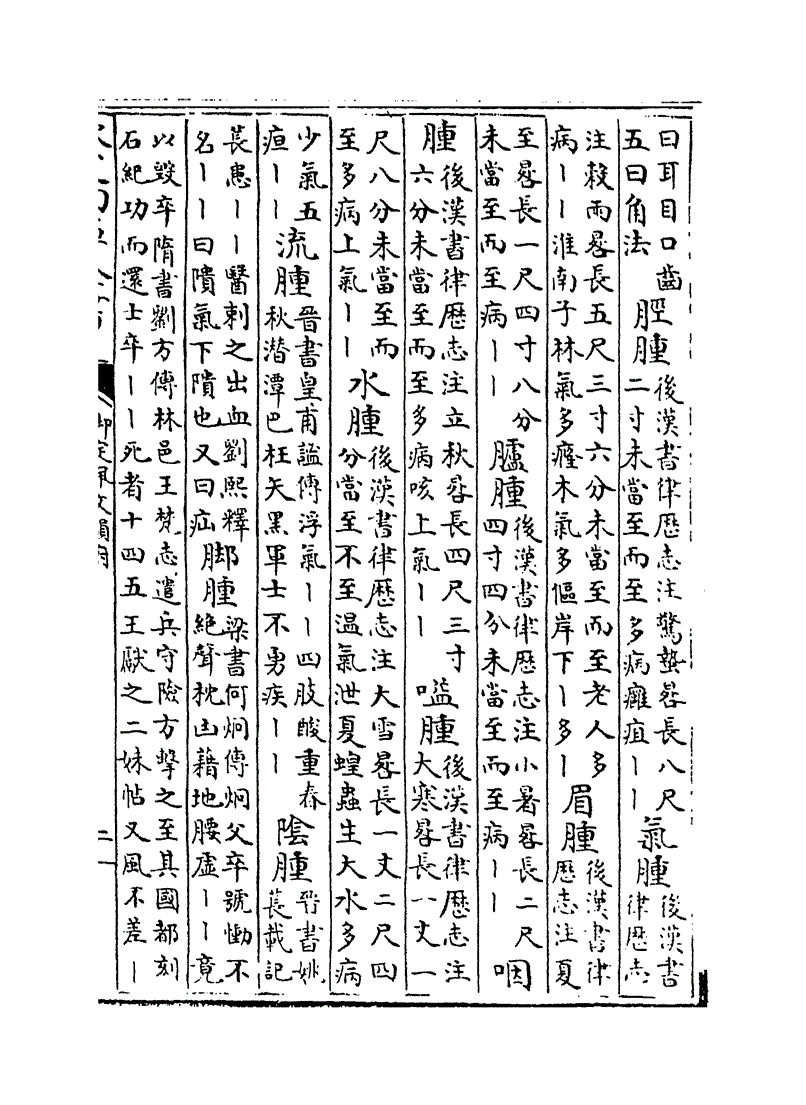 曰耳目口齒
五曰角法
脛腫
後漢書律歴志注驚蟄晷長八尺
二寸未當至而至多病癰疽丨丨
氣腫
後漢書
律歴志
注穀雨晷長五尺三寸六分未當至而至老人多
病丨丨淮南子林氣多癃木氣多傴岸下丨多丨
眉腫
後漢書律
歴志注夏
至晷長一尺四寸八分
未當至而至病丨丨
臚腫
後漢書律歴志注小暑晷長二尺
四寸四分未當至而至病丨丨
咽
腫
後漢書律歴志注立秋晷長四尺三寸
六分未當至而至多病咳上氣丨丨
嗌腫
後漢書律歴志注
大寒晷長一丈一
尺八分未當至而
至多病上氣丨丨
水腫
後漢書律歴志注大雪晷長一丈二尺四
分當至不至温氣泄夏蝗蟲生大水多病
少氣五
疸丨丨
流腫
晉書皇甫謐傳浮氣丨丨四肢酸重春
秋潛潭巴枉矢黑軍士不勇疾丨丨
陰腫
晉書姚
萇載記
萇患丨丨醫刺之出血劉熙釋
名丨丨曰隤氣下隤也又曰疝
脚腫
梁書何炯傳炯父卒號慟不
絶聲枕凷藉地腰虚丨丨竟
以毁卒隋書劉方傳林邑王梵志遣兵守險方擊之至其國都刻
石紀功而還士卒丨丨死者十四五王獻之二妹帖又風不差丨
御定佩文韻府